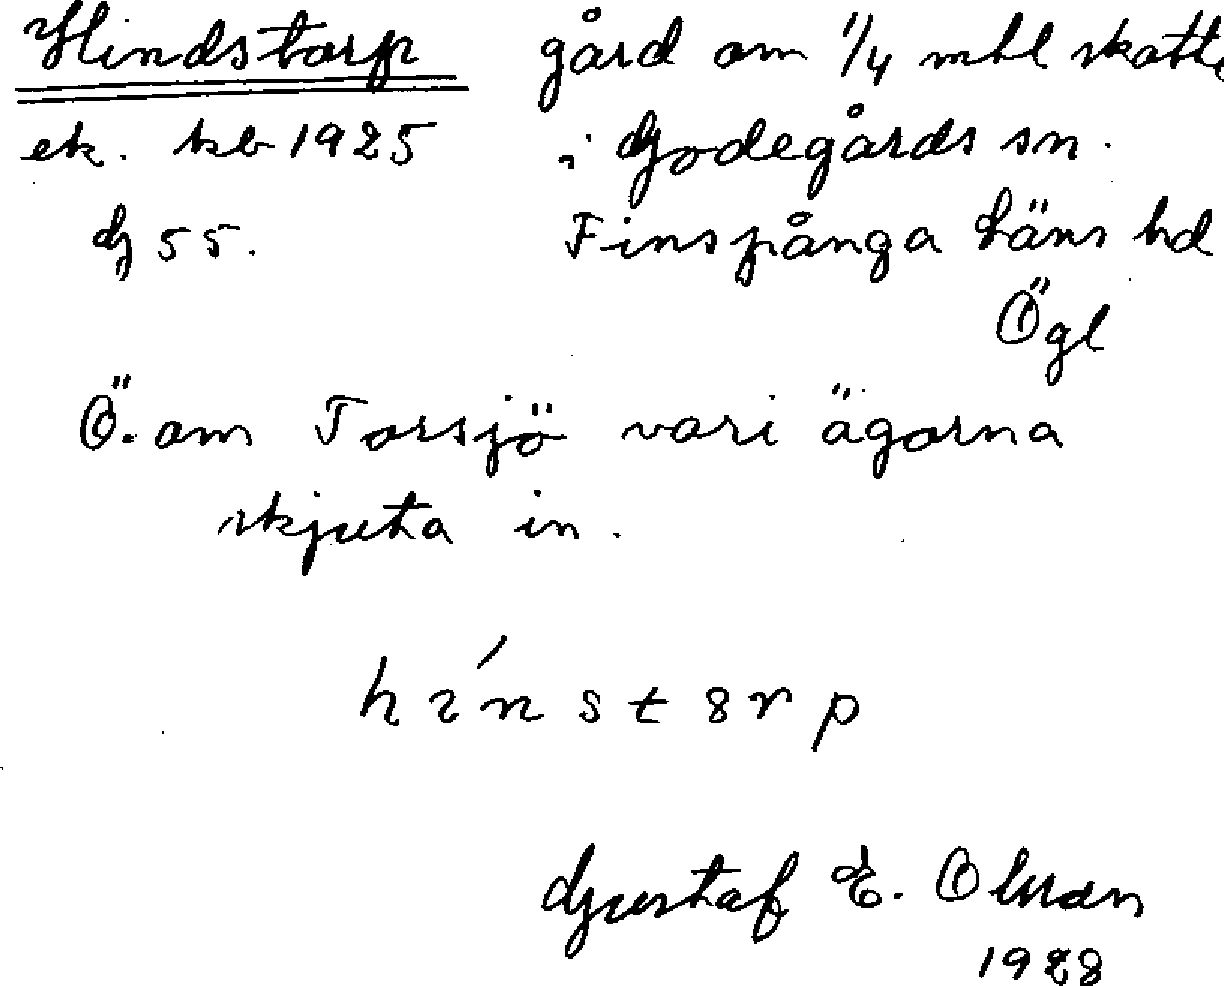 Hindstorp gård om 1/4 mtl skatte
ek. kb 1925 i Godegårds sn.
G 55. Finspånga läns hd
Ögl
Ö. om Torsjö vari ägorna
skjuta in.
hínstørp
Gustaf E. Olsson
1928